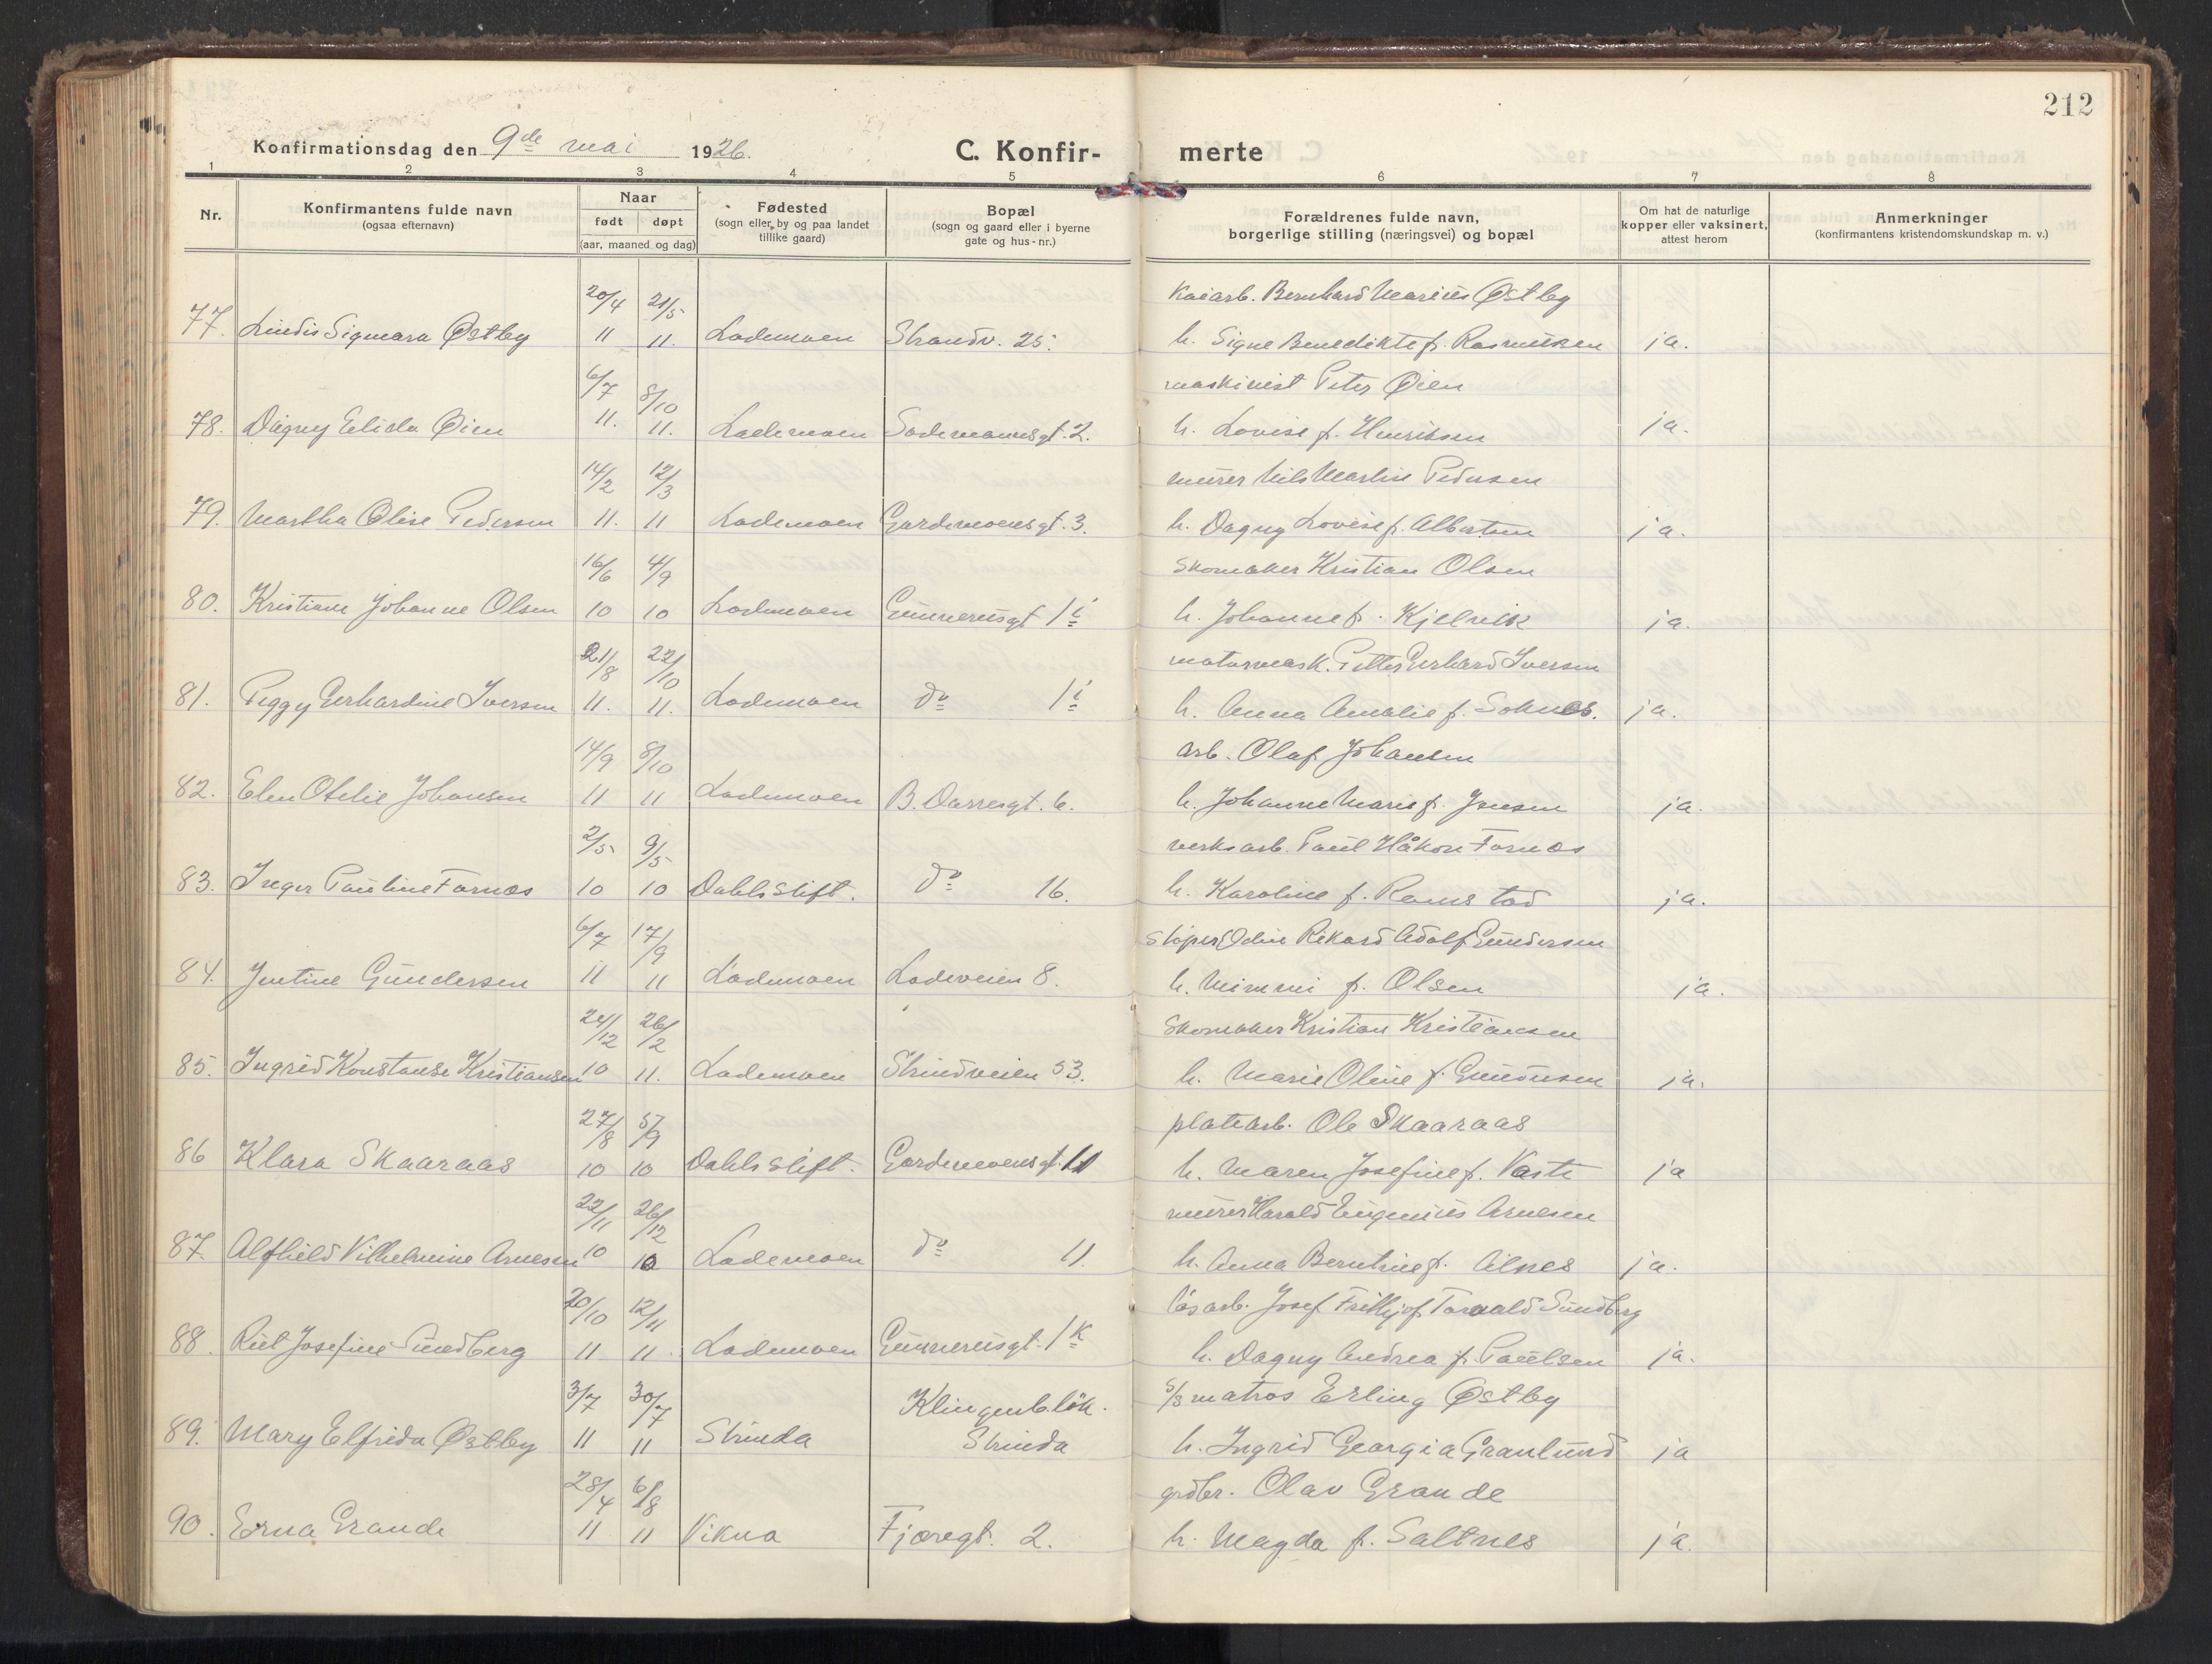 212
Konfirmationsdag den 9de mai 1926.
C. Konfir- merte
1 2 3 4 5 6 7 8
Nr.
Konfirmantens fulde navn
(ogsaa efternavn)
Naar
født døpt
(aar, maaned og dag)
Fødested
(sogn eller by og paa landet
tillike gaard)
Bopæl
(sogn og gaard eller i byerne
gate og hus-nr.)
Forældrenes fulde navn,
borgerlige stilling (næringsvei) og bopæl
Om hat de naturlige
kopper eller vaksinert,
attest herom
Anmerkninger
(konfirmantens kristendomskundskap m. v.)
20/4 21/5 Kaiarb. Bernhard Marius Østby
77. Lindis Sigmara Østby 11 11. Lademoen Strandv. 25. h. Signe Benedikte f. Rasmussen ja.
6/7 8/10 maskinist Peter Øien
78. Dagny Elida Øien 11. 11. Lademoen Sademannsgt. 2. h. Lovise f. Henriksen ja.
14/2 12/3 murer Nils Martin Pedersen
79. Martha Oline Pedersen 11. 11 Lademoen Gardemoensgt. 3. h. Dagny Lovise f. Albertsen ja.
16/6 4/9 Skomaker Kristian Olsen
80. Kristiane Johanne Olsen 10 10 Lademoen Gunnerusgt 1 i h. Johanne f. Kjelvik ja.
21/8 22/10 motormask. Petter Gerhard Iversen
81. Peggy Gerhardine Iversen 11. 11. Lademoen do 1 i h. Anna Amalie f. Soknes. ja.
14/9 8/10 arb. Olaf Johansen
82. Elen Otelie Johansen 11 11 Lademoen B. Darresgt. 6. h. Johanne Marie f. Jensen ja.
2/5 9/5 verksarb. Paul Håkon Fornes
83. Inger Pauline Fornes 10 10 Dahls stift. do 16. h. Karoline f. Ramstad ja.
6/7 17/9 støper Odin Rikard Adolf Gundersen
84. Jentine Gundersen 11 11 Lademoen Ladeveien 8. h. Mimmi f. Olsen ja.
24/12 26/2 Skomaker Kristian Kristiansen
85. Ingrid Konstanse Kristiansen 10 11. Lademoen Strindveien 53. h. Marie Oline f. Gundersen ja.
27/8 5/9 platearb. Ole Skaaraas
86 Klara Skaaraas 10 10 Dahls stift. Gardemoensgt. 11 h. Maren Josefine f. Vaste ja
22/11 26/12 murer Harald Eugenius Arnesen
87. Alfhild Vilhelmine Arnesen 10 10 Lademoen do 11. h. Anna Berntine f. Alnes ja.
20/10 12/11 løsarb. Josef Frithjof Torvald Sundberg
88. Rut Josefine Sundberg 11 11 Lademoen Gunnerusgt. 1 k h. Dagny Andrea f. Paulsen ja.
3/7 30/7 Klingenb. løk. s/s matros Erling Østby
89. Mary Elfrida Østby 11 11 Strinda Strinda h. Ingrid Georgia Granlund ja
28/4 6/8 grdbr. Olav Grande
90. Erna Grande 11 11 Vikna Fjæregt. 2. h. Magda f. Saltnes ja.